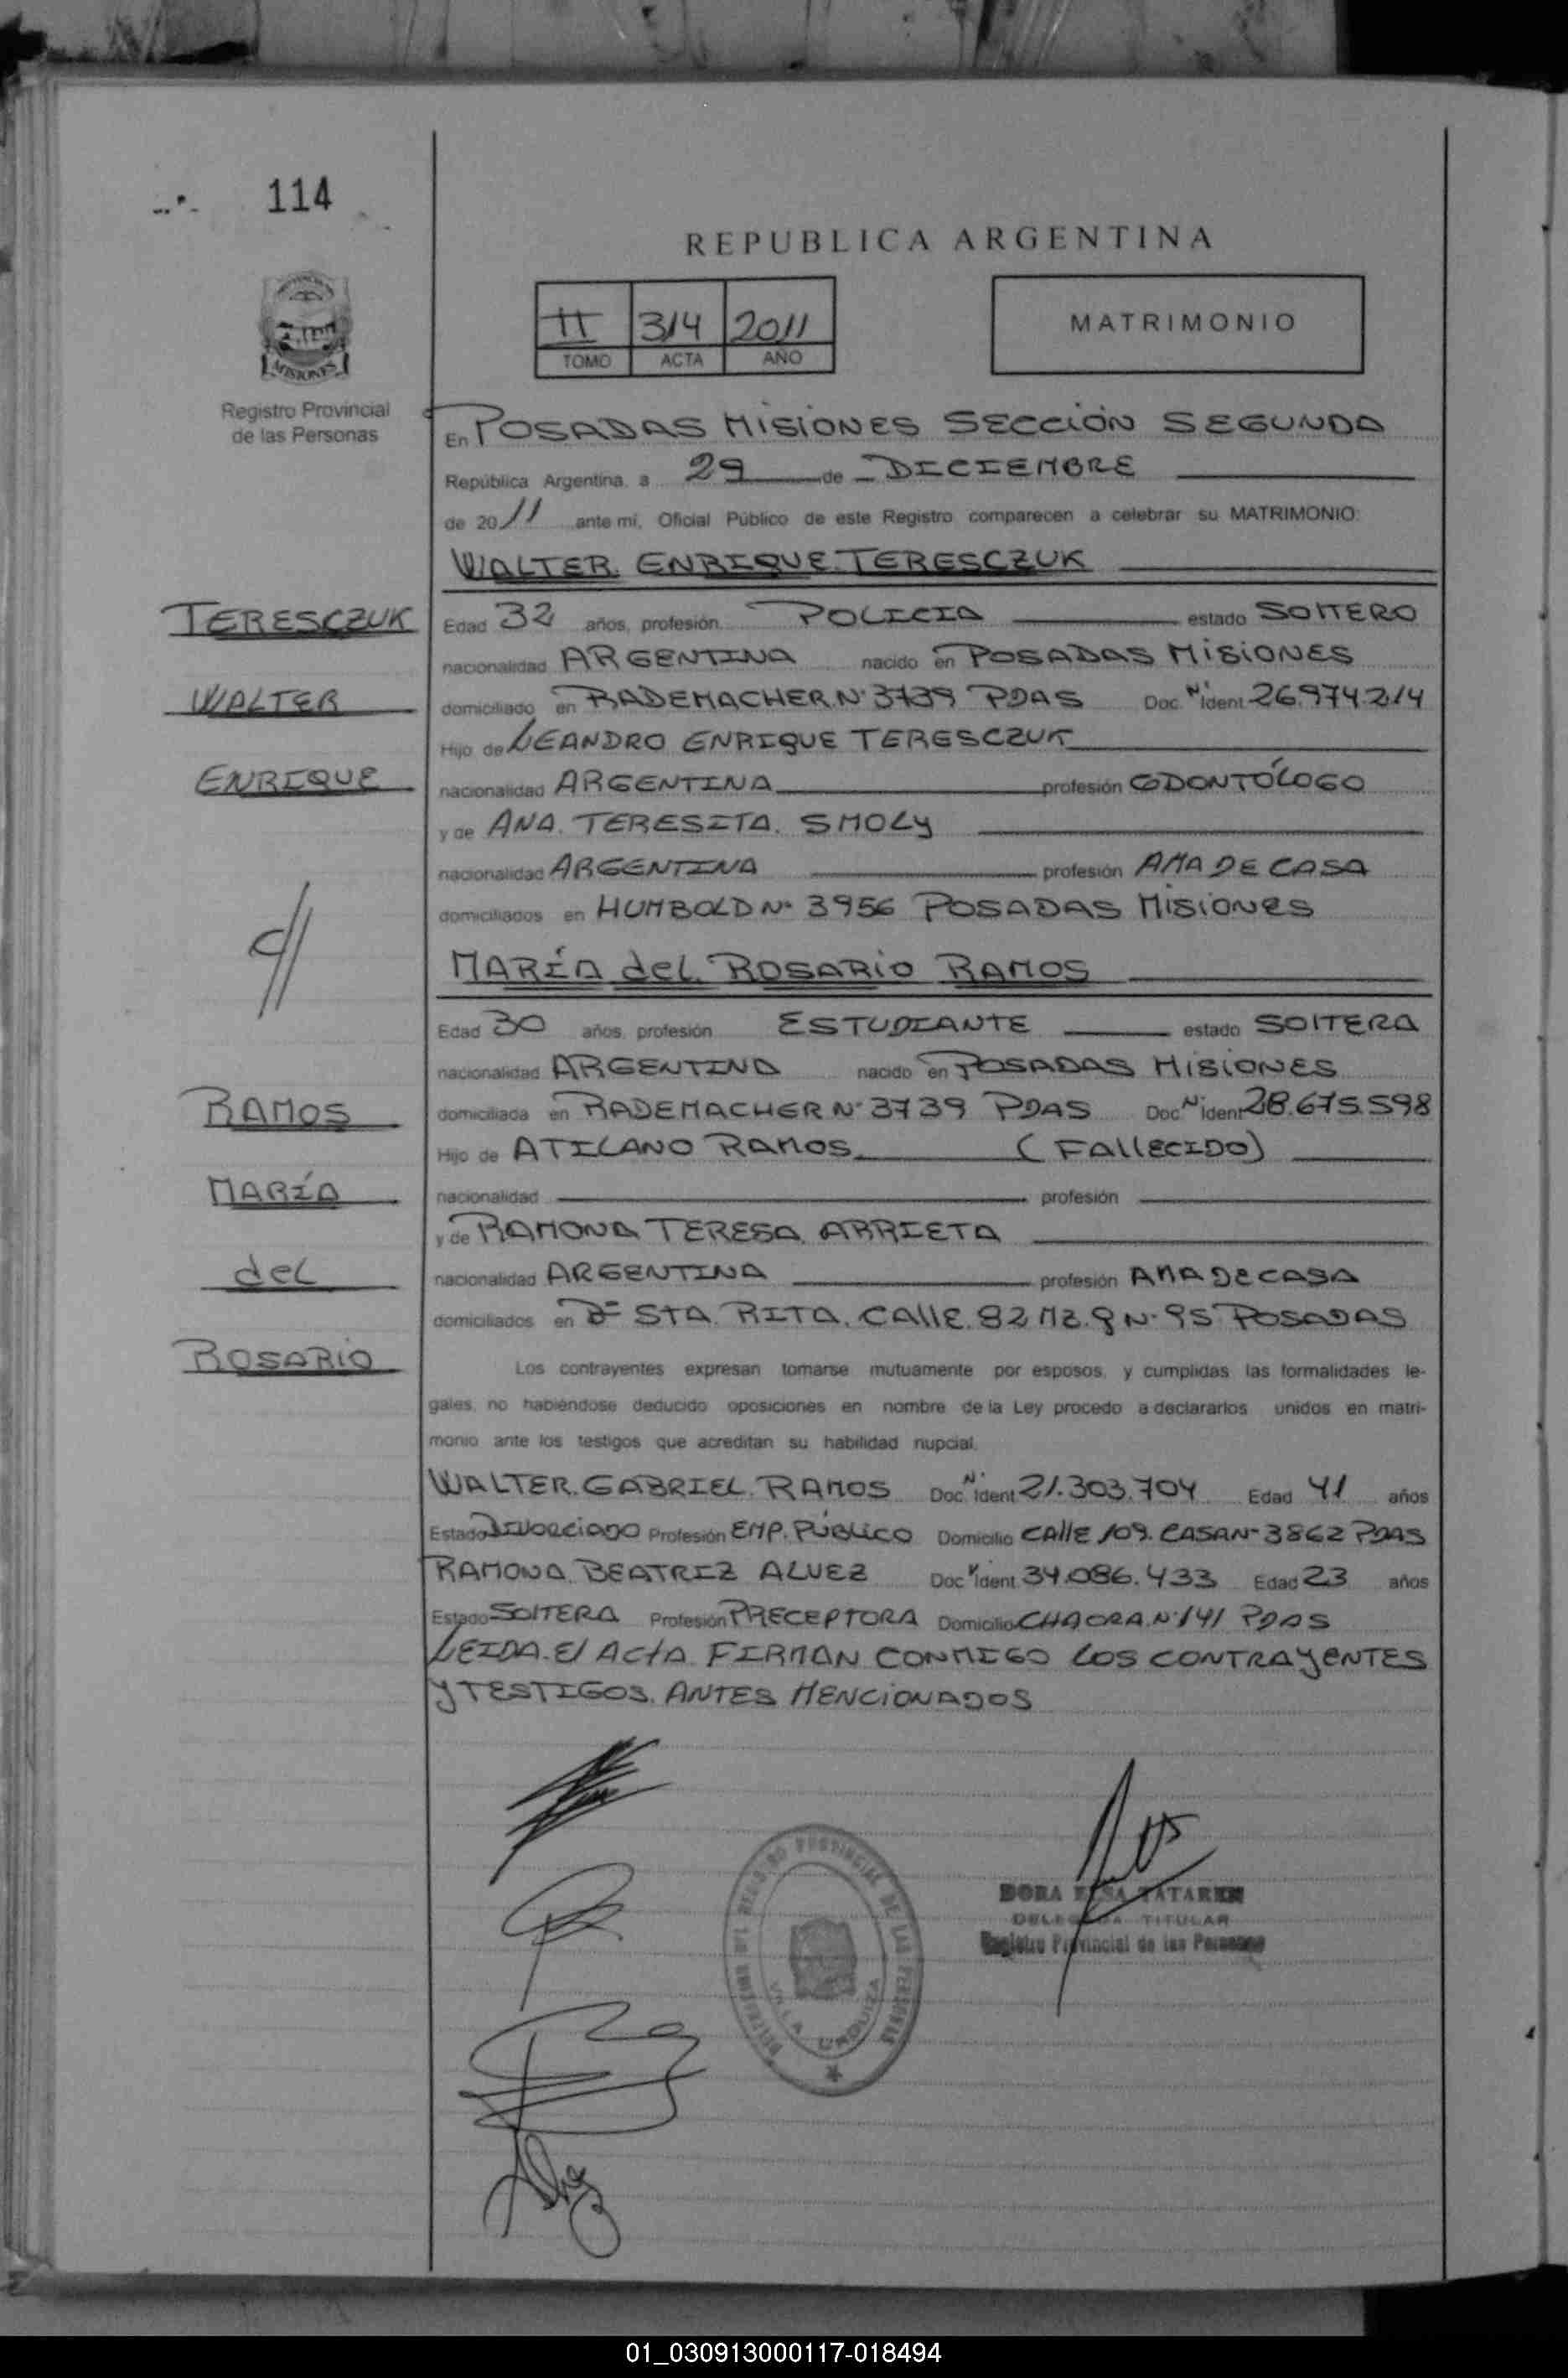 114
REPUBLICA ARGENTINA
II 314 2011
TOMO ACTA AÑO
MATRIMONIO
MISIONES
Registro Provincial
de las Personas
En POSADAS MISIONES SECCIÓN SEGUNDA
República Argentina, a 29 de DICIEMBRE
de 2011 ante mí, Oficial Público de este Registro comparecen a celebrar su MATRIMONIO:
WALTER. ENRIQUE. TERESCZUK
TERESCZUK
Edad 32 años, profesión POLICIA estado SOLTERO
nacionalidad ARGENTINA nacido en POSADAS MISIONES
WALTER
domiciliado en RADEMACHER. Nº 3739 PDAS Doc. Nº Ident 26.974.214
Hijo de LEANDRO ENRIQUE TERESCZUK
ENRIQUE
nacionalidad ARGENTINA profesión ODONTÓLOGO
y de ANA. TERESITA. SMOLY
nacionalidad ARGENTINA profesión AMA DE CASA
domiciliados en HUMBOLD Nº 3956 POSADAS MISIONES
c//
MARÍA del ROSARIO RAMOS
Edad 30 años, profesión ESTUDIANTE estado SOLTERA
nacionalidad ARGENTINA nacido en POSADAS MISIONES
RAMOS
domiciliada en RADEMACHER Nº 3739 PDAS Doc. Nº Ident 28.675.598
Hijo de ATILANO RAMOS (FALLECIDO)
MARÍA
nacionalidad profesión
y de RAMONA TERESA. ARRIETA
del
nacionalidad ARGENTINA profesión AMA DE CASA
domiciliados en Bº STA. RITA. CALLE. 82 MZ. 9 Nº 95 POSADAS
ROSARIO
Los contrayentes expresan tomarse mutuamente por esposos, y cumplidas las formalidades le-
gales, no habiéndose deducido oposiciones en nombre de la Ley procedo a declararlos unidos en matri-
monio ante los testigos que acreditan su habilidad nupcial.
WALTER. GABRIEL. RAMOS Doc. Nº Ident 21.303.704 Edad 41 años
Estado DIVORCIADO Profesión EMP. PÚBLICO Domicilio CALLE 109. CASA Nº 3862 PDAS
RAMONA. BEATRIZ ALVEZ Doc. Nº Ident. 34.086.433 Edad 23 años
Estado SOLTERA Profesión PRECEPTORA Domicilio CHACRA. Nº 141 PDAS
LEIDA. El ActA FIRMAN CONMIGO LOS CONTRAYENTES
Y TESTIGOS. ANTES MENCIONADOS
REGISTRO PROVINCIAL DE LAS PERSONAS
VILLA URQUIZA
DORA TATAREN
DELEGADA TITULAR
Registro Provincial de las Personas
01_030913000117-018494